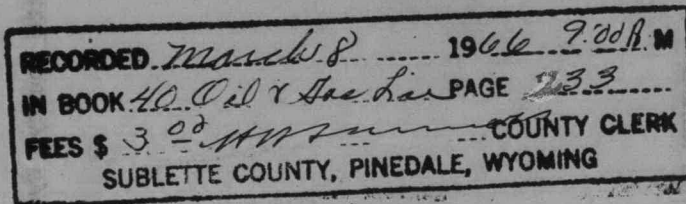 RECORDED March 8 1966 9:00 A M
IN BOOK 40 Oil & Gas PAGE 233
FEES $ 3 00 COUNTY CLERK
SUBLETTE COUNTY, PINEDALE, WYOMING